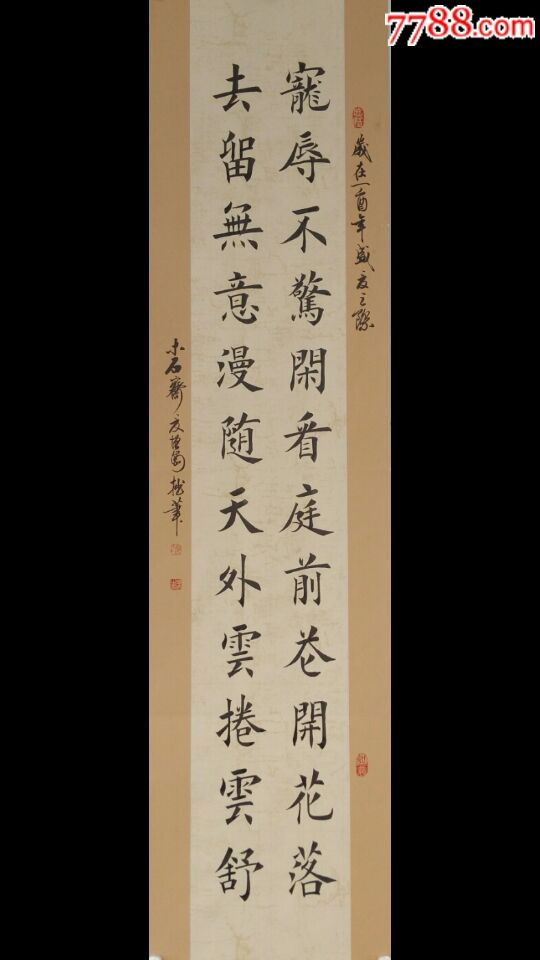 7788.com
歲在丁酉年盛夏之際
寵辱不驚閑看庭前花開花落
去留無意漫隨天外雲捲雲舒
石齋
筆